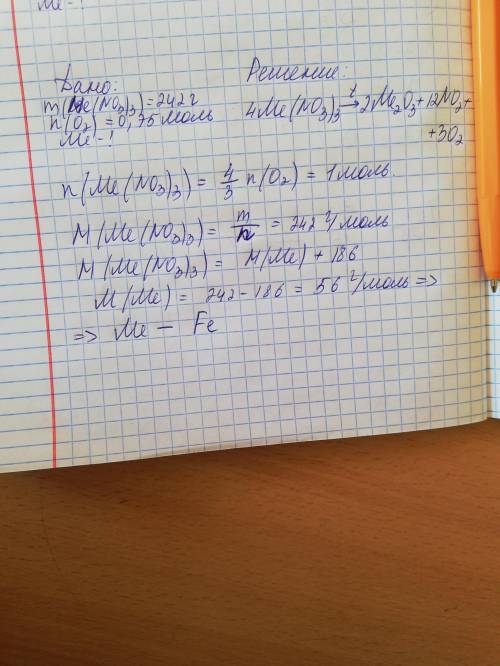 Me-?
Дано:
m(Me(NO3)3)=242г
n(O2)=0,75 моль
Me-?
Решение:
4Me(NO3)3 t→ 2Me2O3+12NO2+
+3O2
n(Me(NO3)3) = 4/3 n(O2) = 1 моль.
M(Me(NO3)3) = m/n = 242 г/моль
M(Me(NO3)3) = M(Me) + 186
M(Me) = 242-186 = 56 г/моль =>
=> Me — Fe